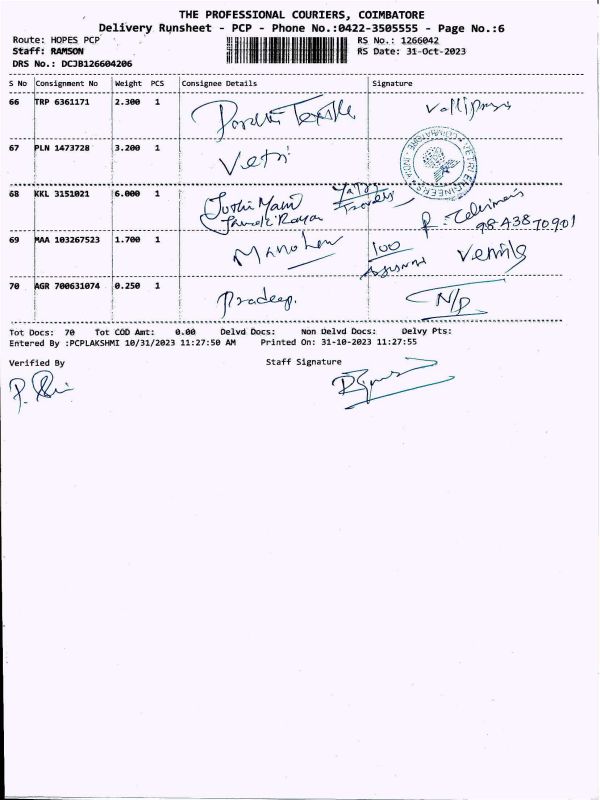 THE PROFESSIONAL COURIERS, COIMBATORE
Delivery Runsheet - PCP - Phone No.:0422-3505555 - Page No.:6
Route: HOPES PCP RS No.: 1266042
Staff: RAMSON RS Date: 31-Oct-2023
DRS No.: DCJB126604206
S No Consignment No Weight PCS Consignee Details Signature
66 TRP 6361171 2.300 1
67 PLN 1473728 3.200 1 Vetri
COIMBATORE VETRI ENGINEERS INDIA
68 KKL 3151021 6.000 1 Jothi Mani
Travels
9843870901
69 MAA 103267523 1.700 1 Manohar 100
70 AGR 700631074 0.250 1 Pradeep. N/P
Tot Docs: 70 Tot COD Amt: 0.00 Delvd Docs: Non Delvd Docs: Delvy Pts:
Entered By :PCPLAKSHMI 10/31/2023 11:27:50 AM Printed On: 31-10-2023 11:27:55
Verified By Staff Signature